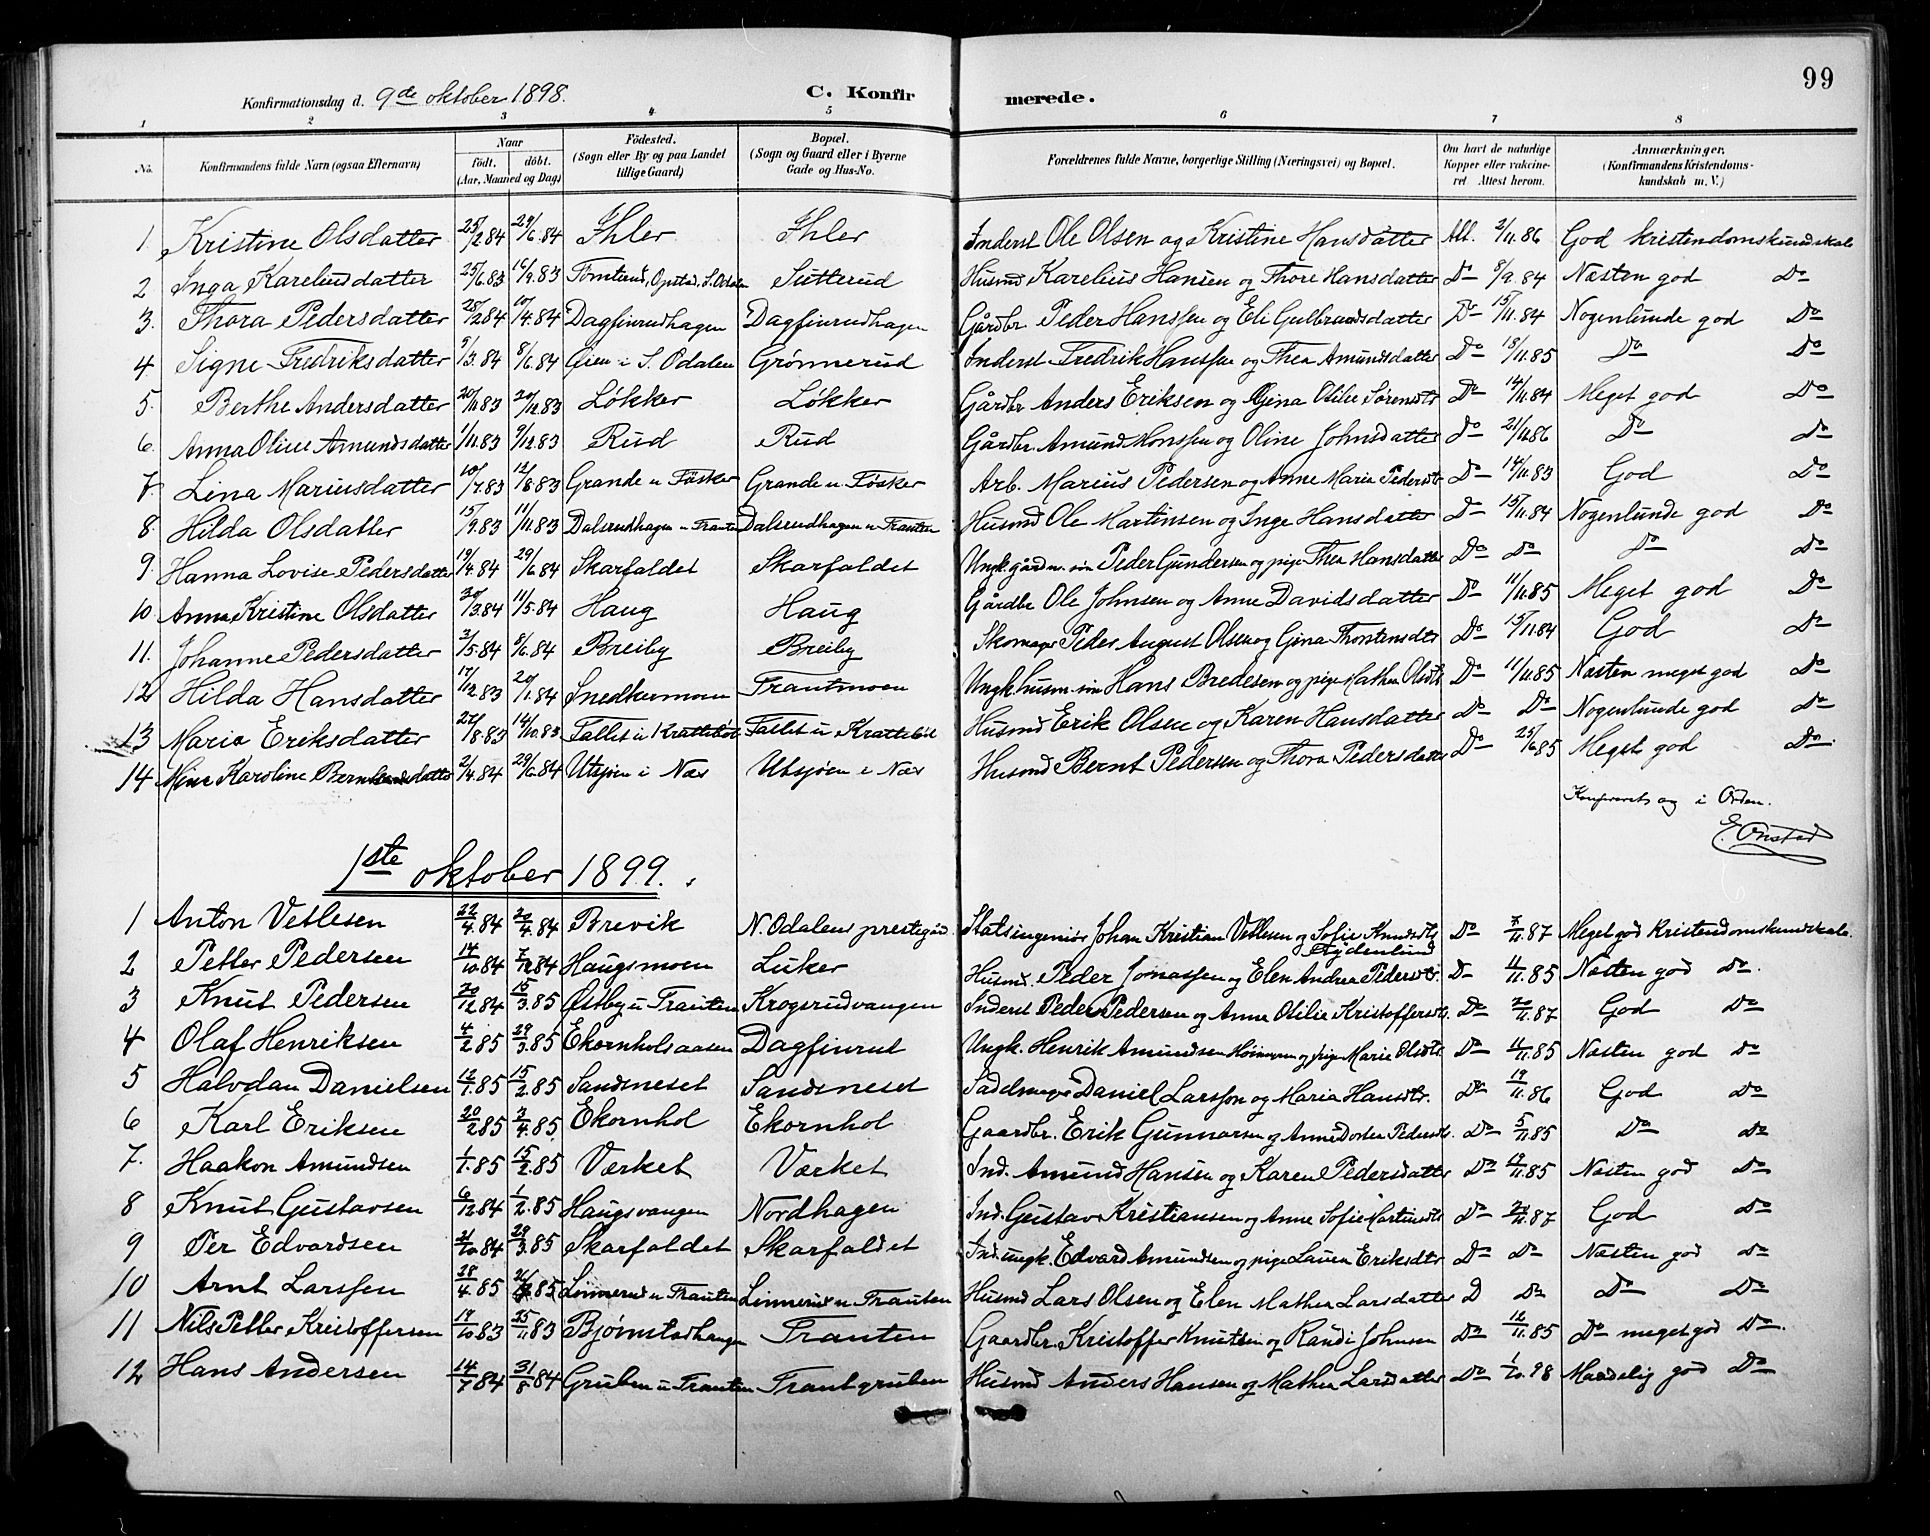 99
Konfirmationsdag d. 9de oktober 1898. C. Konfirmerede.
1 2 3 4 5 6 7 8
No. Konfirmandens fulde Navn (ogsaa Efternavn) Naar födt. döbt. (Aar, Maaned og Dag) Födested. (Sogn eller By og paa Landet tillige Gaard) Bopæl. (Sogn og Gaard eller i Byerne Gade og Hus-No. Forældrenes fulde Navne, borgerlige Stilling (Næringsvei) og Bopæl. Om havt de naturlige Kopper eller vakcineret. Attest herom. Anmærkninger. (Konfirmandens Kristendomskundskab m. V.)
1. Kristine Olsdatter 25/2 84 29/6 84 Ihler Ihler Inderst Ole Olsen og Kristine Hansdatter Att. 2/11 86 God kristendomskundskab
2 Inga Kareliusdatter 25/6 83 16/9 83 Opstad, S. Odalen Sutterud Husmd Karelius Hansen og Thore Hansdatter Do 8/9 84 Næsten god Do
3. Thora Pedersdatter 28/2 84 10/4 84 Dagfinrudhagen Dagfinrudhagen Gårdbr Peder Hanssen og Eli Gulbrandsdatter Do 15/11 84 Nogenlunde god Do
4 Signe Fredriksdatter 9/3 84 8/6 84 Øien i S. Odalen Grønnerud Inderst Fredrik Hanssen og Thea Amundsdatter Do 18/11 85 Do Do
5. Berthe Andersdatter 20/10 83 20/12 83 Løkker Løkker Gårdbr Anders Eriksen og Gina Otilie Sørensdtr Do 14/11 84 Meget god Do
6. Anna Oline Amundsdatter 1/11 83 9/12 83 Rud Rud Gårdbr. Amund Monssen og Oline Johnsdatter Do 21/11 86 Do Do
7. Lina Mariusdatter 10/7 83 12/8 83 Grande u Føsker Grande u Føsker Arb. Marius Pedersen og Anne Marie Pedersdtr Do 14/11 83 God Do
8. Hilda Olsdatter 15/9 83 11/11 83 Dalsrudhagen u Trauten Dalsrudhagen u Trauten Husmd Ole Martinsen og Inge Hansdatter Do 15/11 84 Nogenlunde god Do
9. Hanna Lovise Pedersdatter 19/4 84 29/6 84 Skarfaldet Skarfaldet Ungk. gårdm. søn Peder Gundersen og pige Thea Hansdatter Do Do Do Do
10 Anna Kristine Olsdatter 20/3 84 11/5 84 Haug Haug Gårdbr Ole Johnsen og Anne Davidsdatter Do 11/11 85 Meget god Do
11. Johanne Pedersdatter 3/5 84 8/6 84 Breiby Breiby Skomager Peder August Olsen og Gina Thorstensdtr Do 15/11 84 God Do
12 Hilda Hansdatter 17/12 83 20/1 84 Snedkermoen Trautmoen Ungk husm. søn Hans Bredesen og pige Mathea Olsdtr Do 11/11 85 Næsten meget god Do
13 Marie Eriksdatter 27/8 83 14/10 83 Fallet u Krattebøl Fallet u Krattebøl Husmd Erik Olsen og Karen Hansdatter Do Do Nogenlunde god Do
14 Mina Karoline Berntsdatter 2/4 84 29/6 84 Utsjøen i Næs Utsjøen i Næs Husmd Bernt Pedersen og Thora Pedersdatter Do 25/6 85 Meget god Do
Konfereret og i Orden.
E. Onstad
1ste oktober 1899.
1 Anton Vetlesen 22/4 84 20/4 84 Brevik N. Odalens prestegård Statsingeniør Johan Kristian Vetlesen og Sofie Knudsdtr Frydenlund Do 7/11 87 Meget god Kristendomskundskab.
2 Petter Pedersen 14/10 84 7/12 84 Haugsmoen Luker Husmd. Peder Jonassen og Elen Andrea Pedersdtr. Do 11/11 85 Næsten god Do
3 Knut Pedersen 20/12 84 15/3 85 Østby u Trauten Krogsrudvangen Inderst Peder Pedersen og Anne Otilie Kristoffersdtr. Do 20/11 87 God Do
4 Olaf Henriksen 4/2 85 29/3 85 Ekornholsaasen Dagfinrud Ungk. Henrik Amundsen og pige Marie Olsdtr Do 11/11 85 Næsten god Do
5 Halvdan Danielsen 12/1 85 15/2 85 Sandsneset Sandsneset Sadelmager Daniel Larsson og Maria Hansdtr. Do 19/11 86 God Do
6 Karl Eriksen 20/2 85 2/4 85 Ekornhol Ekornhol Gaardbr. Erik Gunnarsen og Anne Dortea Pedersdtr. Do 5/11 85 Do Do
7. Haakon Amundsen 1/1 85 15/2 85 Værket Værket Ind. Amund Hansen og Karen Pedersdatter Do 17/11 85 Næsten god Do
8 Knut Gustavsen 6/12 84 1/2 85 Haugsvangen Nordhagen Ind. Gustav Kristiansen og Anne Sofie Martinsdtr Do 20/11 87 God Do
9 Per Edvardsen 21/10 84 29/3 85 Skarfaldet Skarfaldet Ind. ungk. Edvard Amundsen og pige Laura Eriksdtr Do Do Næsten god Do
10 Arnt Larssen 28/4 85 85 Linnerud u Trauten Linnerud u Trauten Husmd Lars Olsen og Elen Mathea Larsdatter D Do Do Do
11 Nils Petter Kristoffersen 17/10 83 25/11 83 Bjørnstadhaugen Trauten Gaardbr. Kristoffer Knutsen og Randi Johnsen Do 12/11 85 Do meget god Do
12 Hans Andersen 14/7 84 31/8 84 Gruben u Trauten Trautgruben Husmd Anders Hansen og Mathea Larsdatter Do 1/10 98 Maadelig god Do